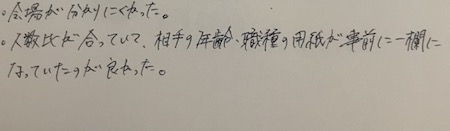 ・会場が分かりにくかった。
・人数比が合っていて、相手の年齢、職種の用紙が事前に一欄に
なっていたのが良かった。